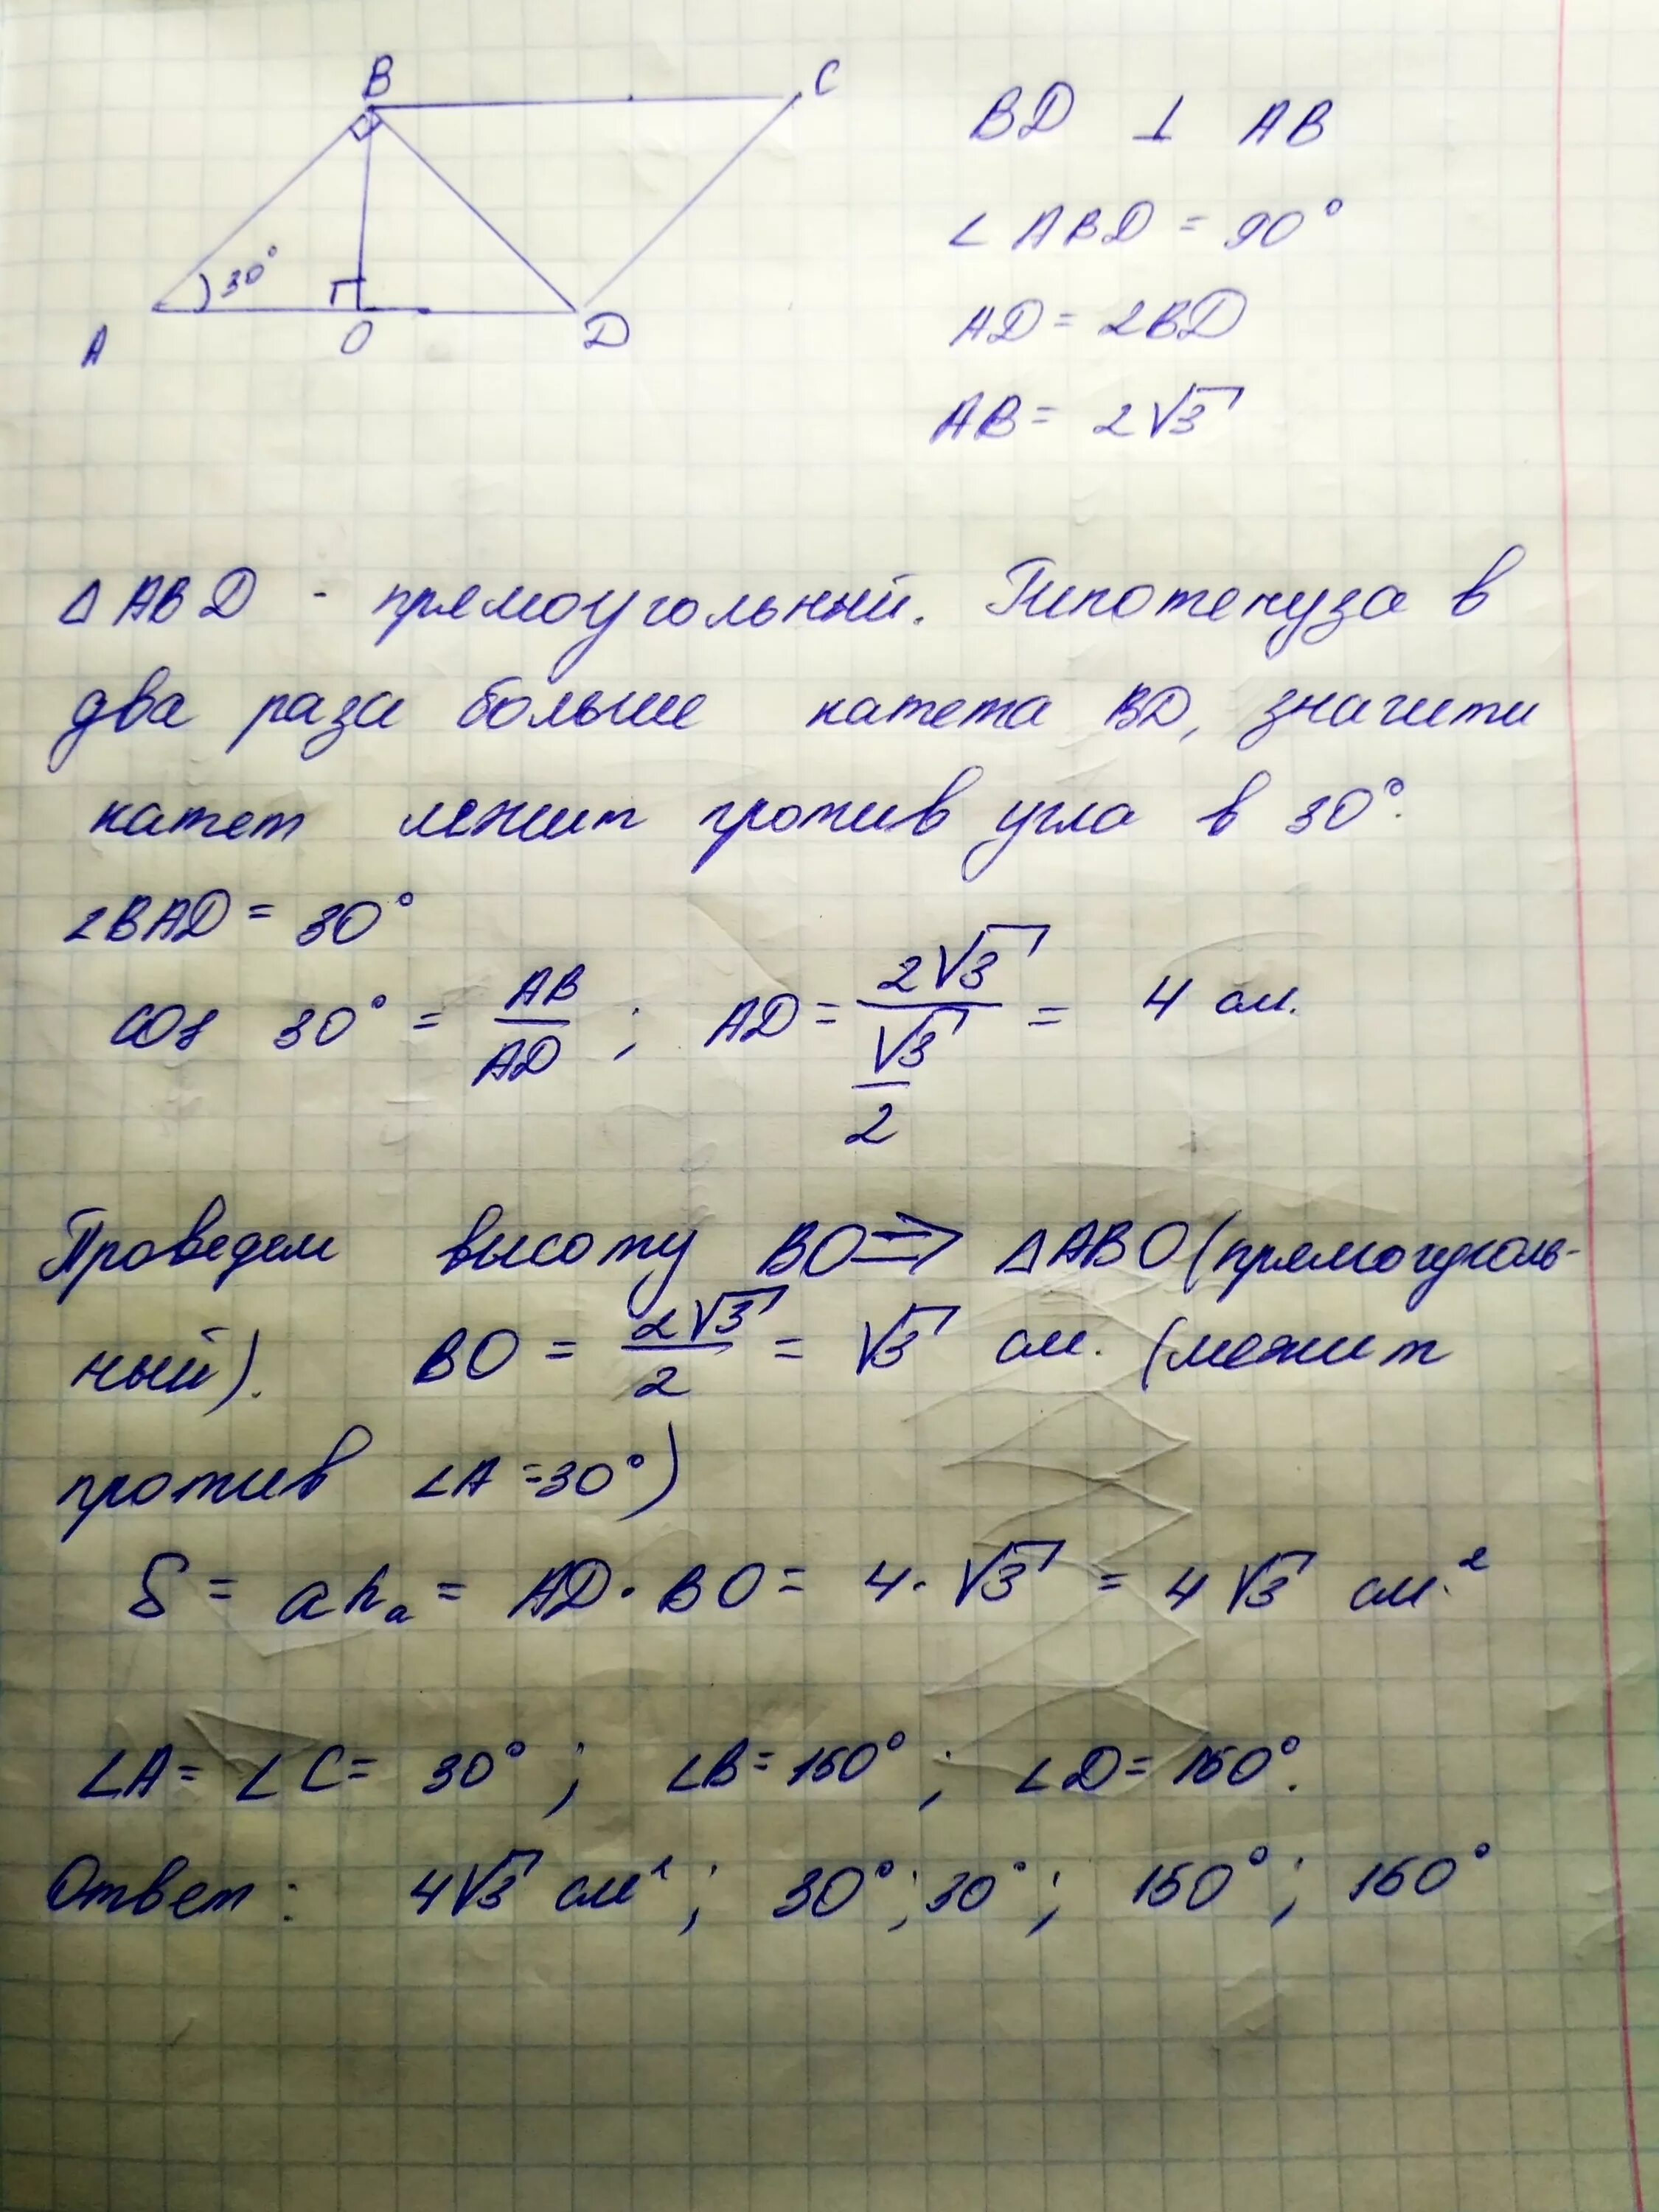 B
C
30°
A
O
D
BD ⊥ AB
∠ ABD = 90°
AD = 2BD
AB = 2√3
△ ABD - прямоугольный. Гипотенуза в
два раза больше катета BD, значит
катет лежит против угла в 30°.
∠BAD = 30°
cos 30° = AB/AD ; AD = 2√3/(√3/2) = 4 см.
Проведем высоту BO ⇒ △ABO (прямоуголь-
ный). BO = 2√3/2 = √3 см. (лежит
против ∠A = 30°)
S = ahₐ = AD · BO = 4 · √3 = 4√3 см.²
∠A = ∠C = 30° ; ∠B = 150° ; ∠D = 150°.
Ответ: 4√3 см² ; 30° ; 30° ; 150° ; 150°